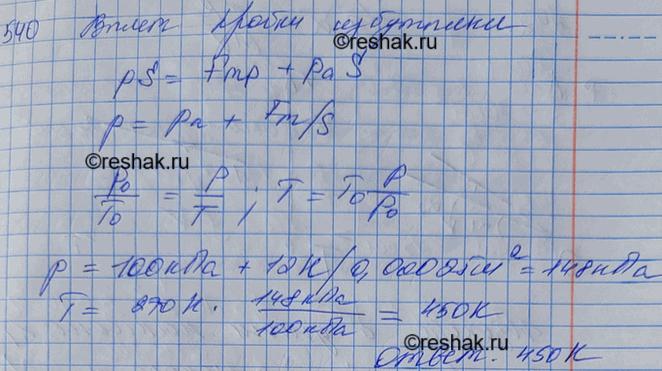 540 Вылет пробки из бутылки
©reshak.ru
pS = Fтр + Pa S
p = pa + Fт/S
©reshak.ru
P₀/T₀ = P/T ; T = T₀ P/P₀
p = 100 кПа + 12 Н/0,00025 м² = 148 кПа
T = 270 К · 148 кПа/100 кПа = 450 К
©reshak.ru
Ответ: 450 К